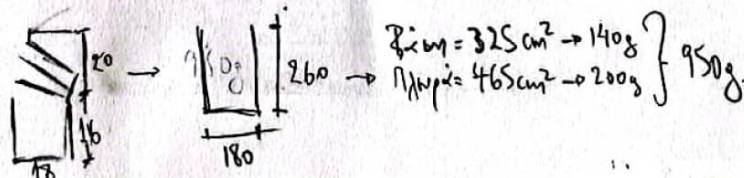 20
16
18
→
950g
260
180
→ Βάση = 325 cm² → 140g
Πλευρά = 465 cm² → 200g
} 950g.